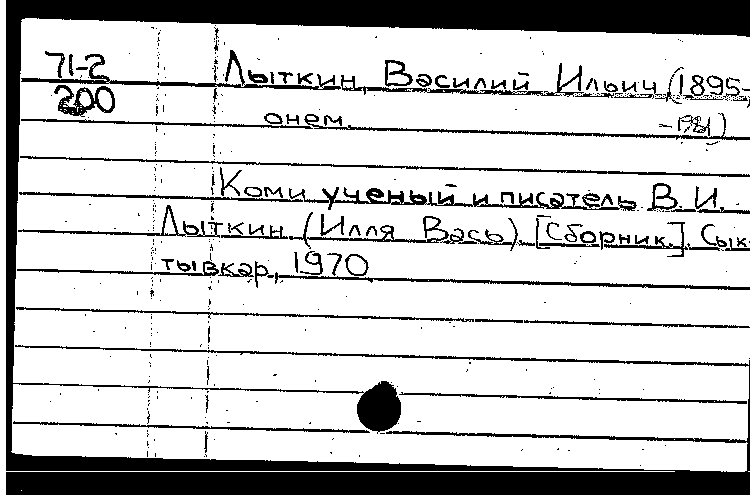 71-2 Лыткин, Василий Ильич (1895-
200 о нем. -1981)
Коми ученый и писатель В. И.
Лыткин. (Илля Вась). [Сборник.]. Сык-
тывкар, 1970